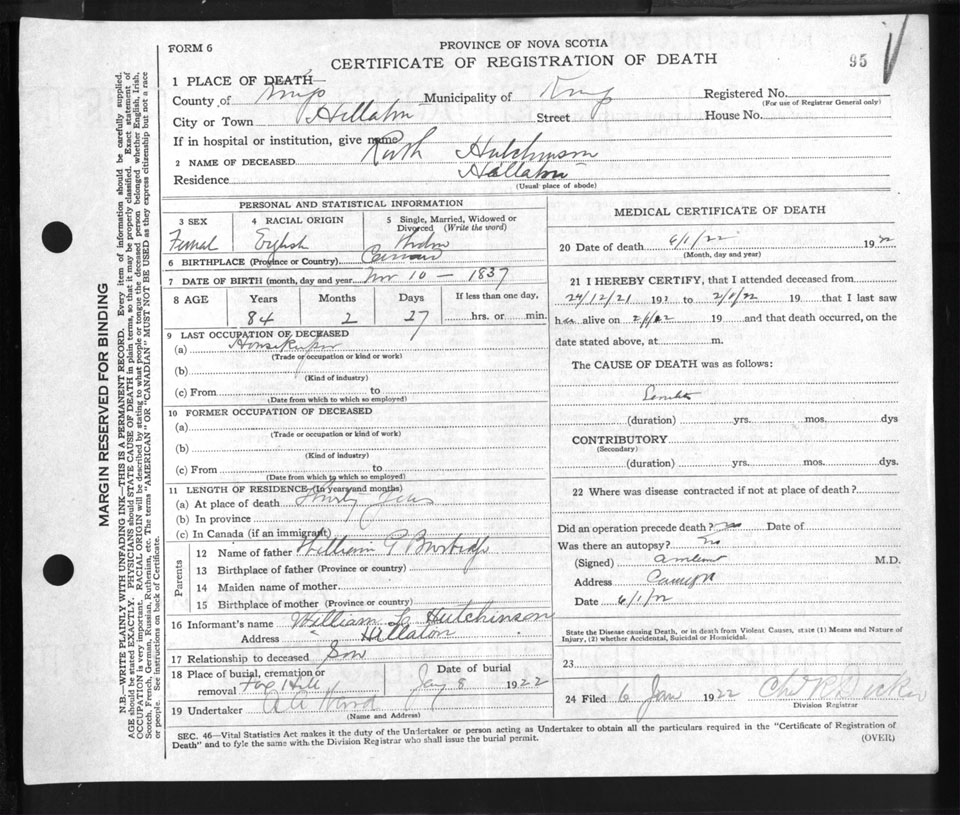 FORM 6
PROVINCE OF NOVA SCOTIA
CERTIFICATE OF REGISTRATION OF DEATH
95
1 PLACE OF DEATH—
County of Kings Municipality of Kings Registered No.
(For use of Registrar General only)
City or Town Hillaton Street House No.
If in hospital or institution, give name
2 NAME OF DECEASED Ruth Hutchinson
Residence Hillaton
(Usual place of abode)
PERSONAL AND STATISTICAL INFORMATION
3 SEX 4 RACIAL ORIGIN 5 Single, Married, Widowed or Divorced (Write the word)
Femal English Widow
6 BIRTHPLACE (Province or Country)
7 DATE OF BIRTH (month, day and year) Nov 10 — 1837
8 AGE Years Months Days If less than one day,
84 2 27 hrs. or min.
9 LAST OCCUPATION OF DECEASED
(a) Housekeeper
(Trade or occupation or kind or work)
(b)
(Kind of industry)
(c) From to
(Date from which to which so employed)
10 FORMER OCCUPATION OF DECEASED
(a)
(Trade or occupation or kind of work)
(b)
(Kind of industry)
(c) From to
(Date from which to which so employed)
11 LENGTH OF RESIDENCE (In years and months)
(a) At place of death Thirty years
(b) In province
(c) In Canada (if an immigrant)
Parents
12 Name of father William P Burbidge
13 Birthplace of father (Province or country)
14 Maiden name of mother
15 Birthplace of mother (Province or country)
16 Informant's name William L Hutchinson
Address " Hillaton
17 Relationship to deceased Son
18 Place of burial, cremation or removal Fox Hill Date of burial Jay 8 1922
19 Undertaker A A Ward
(Name and Address)
MEDICAL CERTIFICATE OF DEATH
20 Date of death 6/1/22 1922
(Month, day and year)
21 I HEREBY CERTIFY, that I attended deceased from
24/12/21 191 to 2/1/22 19 that I last saw
her alive on 2/1/22 19 and that death occurred, on the
date stated above, at m.
The CAUSE OF DEATH was as follows:
(duration) yrs. mos. dys
CONTRIBUTORY
(Secondary)
(duration) yrs. mos. dys.
22 Where was disease contracted if not at place of death?
Did an operation precede death? no Date of
Was there an autopsy? no
(Signed) M.D.
Address Canning
Date 6/1/22
State the Disease causing Death, or in death from Violent Causes, state (1) Means and Nature of
Injury, (2) whether Accidental, Suicidal or Homicidal.
23
24 Filed 6 Jan 1922
Division Registrar
SEC. 46—Vital Statistics Act makes it the duty of the Undertaker or person acting as Undertaker to obtain all the particulars required in the "Certificate of Registration of
Death" and to fyle the same with the Division Registrar who shall issue the burial permit.
(OVER)
MARGIN RESERVED FOR BINDING
N.B.—WRITE PLAINLY WITH UNFADING INK—THIS IS A PERMANENT RECORD. Every item of information should be carefully supplied.
AGE should be stated EXACTLY. PHYSICIANS should STATE CAUSE OF DEATH in plain terms, so that it may be properly classified. Exact statement of
OCCUPATION is very important. RACIAL ORIGIN will be described by stating to what people or tongue the deceased person belonged whether English, Irish,
Scotch, French, German, Russian, Ruthenian, etc. The terms "AMERICAN" OR "CANADIAN" MUST NOT BE USED as they express citizenship but not a race
or people. See instructions on back of Certificate.